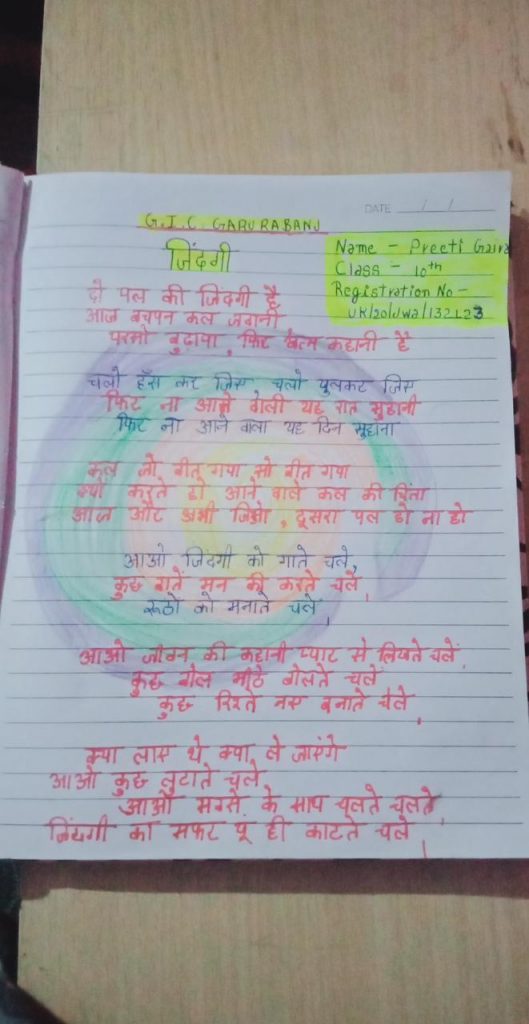 DATE
G.I.C. GARURABANJ
जिंदगी
Name - Preeti Gaira
Class - 10th
Registration No -
UK/20/dwa/132123
दो पल की जिंदगी है
आज बचपन कल जवानी
परसो बुढ़ापा, फिर खत्म कहानी है
चलो हँस कर जिए, चलो खुलकर जिए
फिर ना आने वाली यह रात सुहानी
फिर ना आने वाला यह दिन सुहाना
कल जो बीत गया सो बीत गया
क्यों करते हो आने वाले कल की चिंता
आज और अभी जिओ, दूसरा पल हो ना हो
आओ जिंदगी को गाते चले,
कुछ बातें मन की करते चले,
रूठो को मनाते चलें,
आओ जीवन की कहानी प्यार से लिखते चलें,
कुछ बोल मीठे बोलते चलें
कुछ रिश्ते नए बनाते चले,
क्या लाए थे क्या ले जाएंगे
आओ कुछ लुटाते चले
आओ सबके साथ चलते चलते,
जिंदगी का सफर यू ही काटते चले,